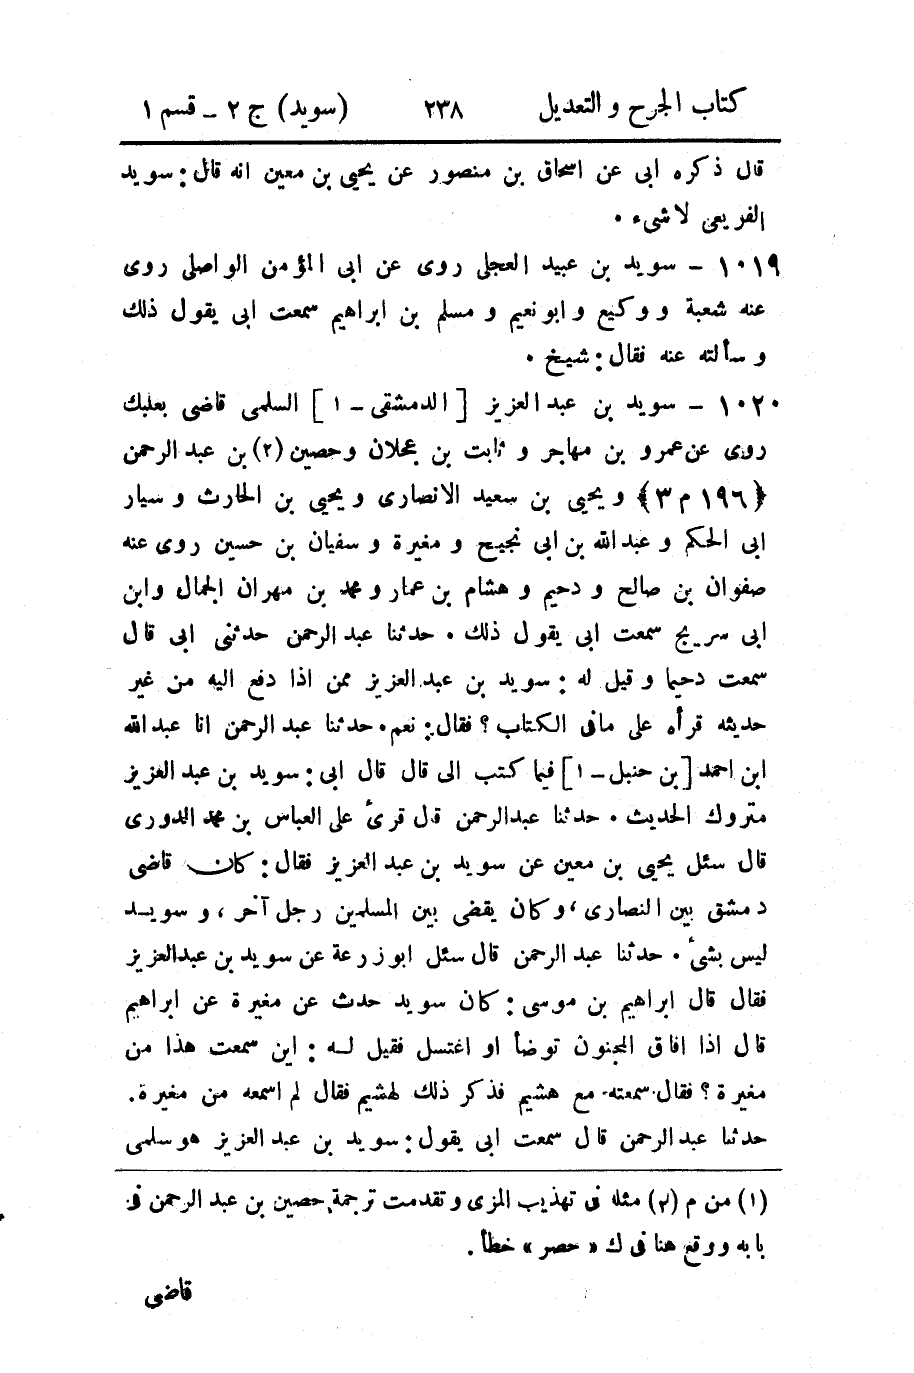 كتاب الجرح و التعديل ٢٣٨ (سويد) ج ٢ ـ قسم ١
قال ذكره ابى عن اسحاق بن منصور عن يحيى بن معين انه قال : سويد
الفريعى لاشىء ٠
١٠١٩ ـ سويد بن عبيد العجلى روى عن ابى المؤمن الواصلى روى
عنه شعبة و وكيع و ابو نعيم و مسلم بن ابراهيم سمعت ابى يقول ذلك
و سألته عنه فقال : شيخ ٠
١٠٢٠ ـ سويد بن عبد العزيز [ الدمشقى ـ ١ ] السلمى قاضى بعلبك
روى عن عمرو بن مهاجر و ثابت بن عجلان وحصين (٢) بن عبد الرحمن
﴿١٩٦ م ٣﴾ و يحيى بن سعيد الانصارى و يحيى بن الحارث و سيار
ابى الحكم و عبد الله بن ابى نجيح و مغيرة و سفيان بن حسين روى عنه
صفوان بن صالح و دحيم و هشام بن عمار و محمد بن مهران الجمال وابن
ابى سريج سمعت ابى يقول ذلك ٠ حدثنا عبد الرحمن حدثنى ابى قال
سمعت دحيما و قيل له : سويد بن عبد العزيز ممن اذا دفع اليه من غير
حديثه قرأه على مافى الكتاب ؟ فقال : نعم ٠ حدثنا عبد الرحمن انا عبد الله
ابن احمد [ بن حنبل ـ ١ ] فيما كتب الى قال قال ابى : سويد بن عبد العزيز
متروك الحديث ٠ حدثنا عبدالرحمن قال قرئ على العباس بن محمد الدورى
قال سئل يحيى بن معين عن سويد بن عبد العزيز فقال : كان قاضى
دمشق بين النصارى ، و كان يقضى بين المسلمين رجل آخر ، و سويد
ليس بشئ ٠ حدثنا عبد الرحمن قال سئل ابو زرعة عن سويد بن عبدالعزيز
فقال قال ابراهيم بن موسى : كان سويد حدث عن مغيرة عن ابراهيم
قال اذا افاق المجنون توضأ او اغتسل فقيل له : اين سمعت هذا من
مغيرة ؟ فقال سمعته مع هشيم فذكر ذلك لهشيم فقال لم اسمعه من مغيرة .
حدثنا عبد الرحمن قال سمعت ابى يقول : سويد بن عبد العزيز هو سلمى
(١) من م (٢) مثله فى تهذيب المزى و تقدمت ترجمة حصين بن عبد الرحمن فى
بابه و وقع هنا فى ك « حصر » خطأ .
قاضى